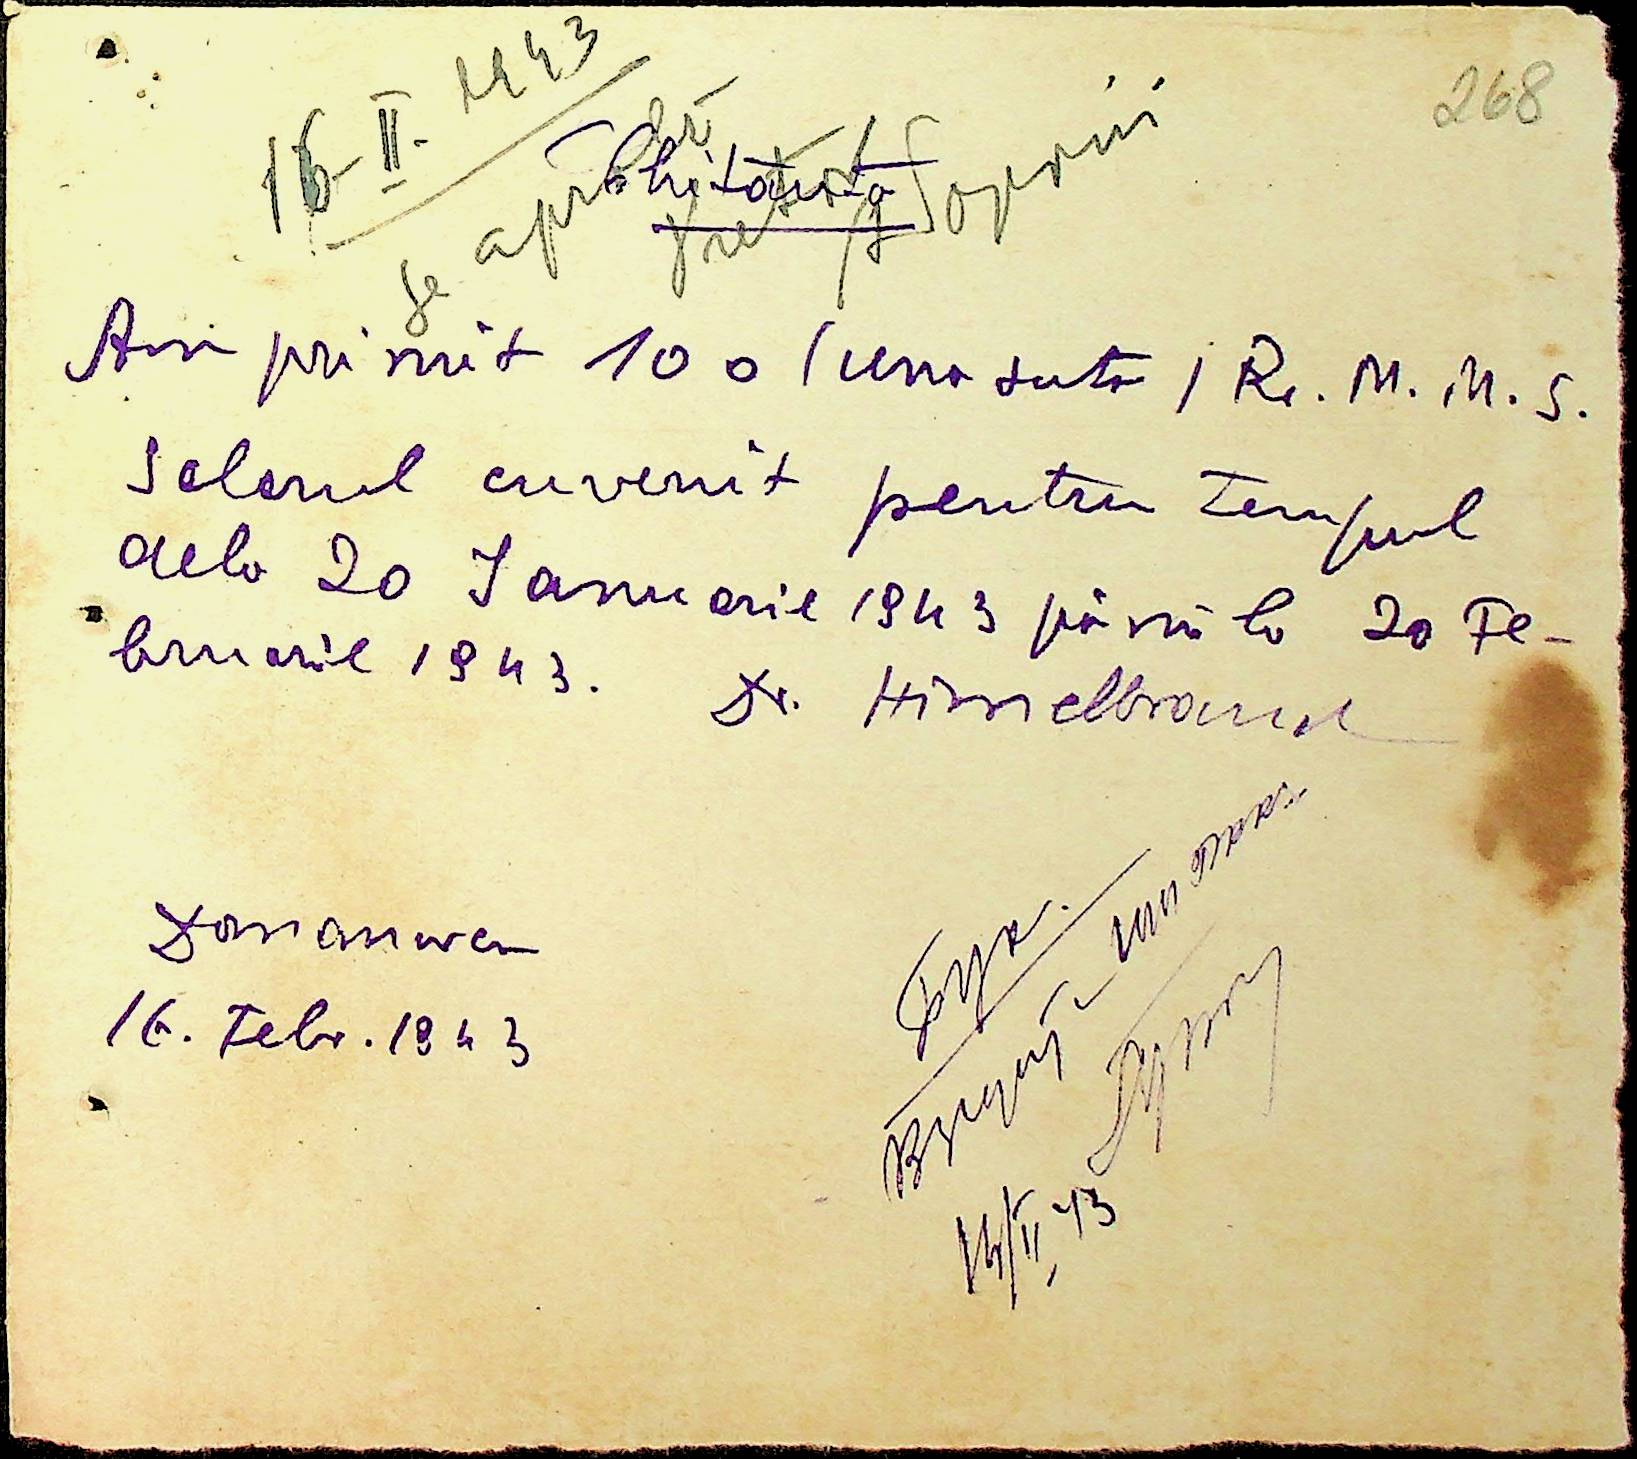 268
16-II. 1943
se aprobă
Pretor
Chitanta
Am primit 100 / una suta / R. M. M. S.
Salarul cuvenit pentru tempul
dela 20 Januarie 1943 până la 20 Fe-
bruarie 1943.
Dr. Himelbrand
Domanwca
16. Febr. 1943
14/II 43